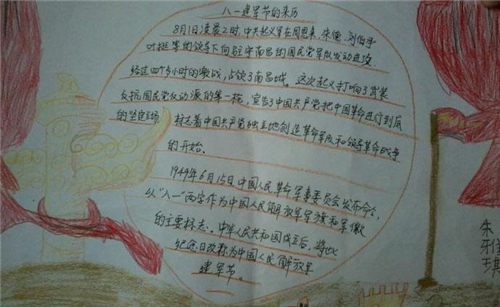 八一建军节的来历
8月1日凌晨2时，中共起义军在周恩来、朱德、刘伯承
叶挺等的领导下向驻守南昌的国民党军队发动进攻
经过四个多小时的激战，占领了南昌城。这次起义打响了武装
反抗国民党反动派的第一枪，宣告了中国共产党把中国革命进行到底
的坚定立场 标志着中国共产党独立地创造革命军队和领导革命战争
的开始。
1949年6月15日中国人民革命军事委员会发布命令:
以"八一"两字作为中国人民解放军军旗和军徽
的主要标志。中华人民共和国成立后，将此
纪念日改称为中国人民解放军
建军节。